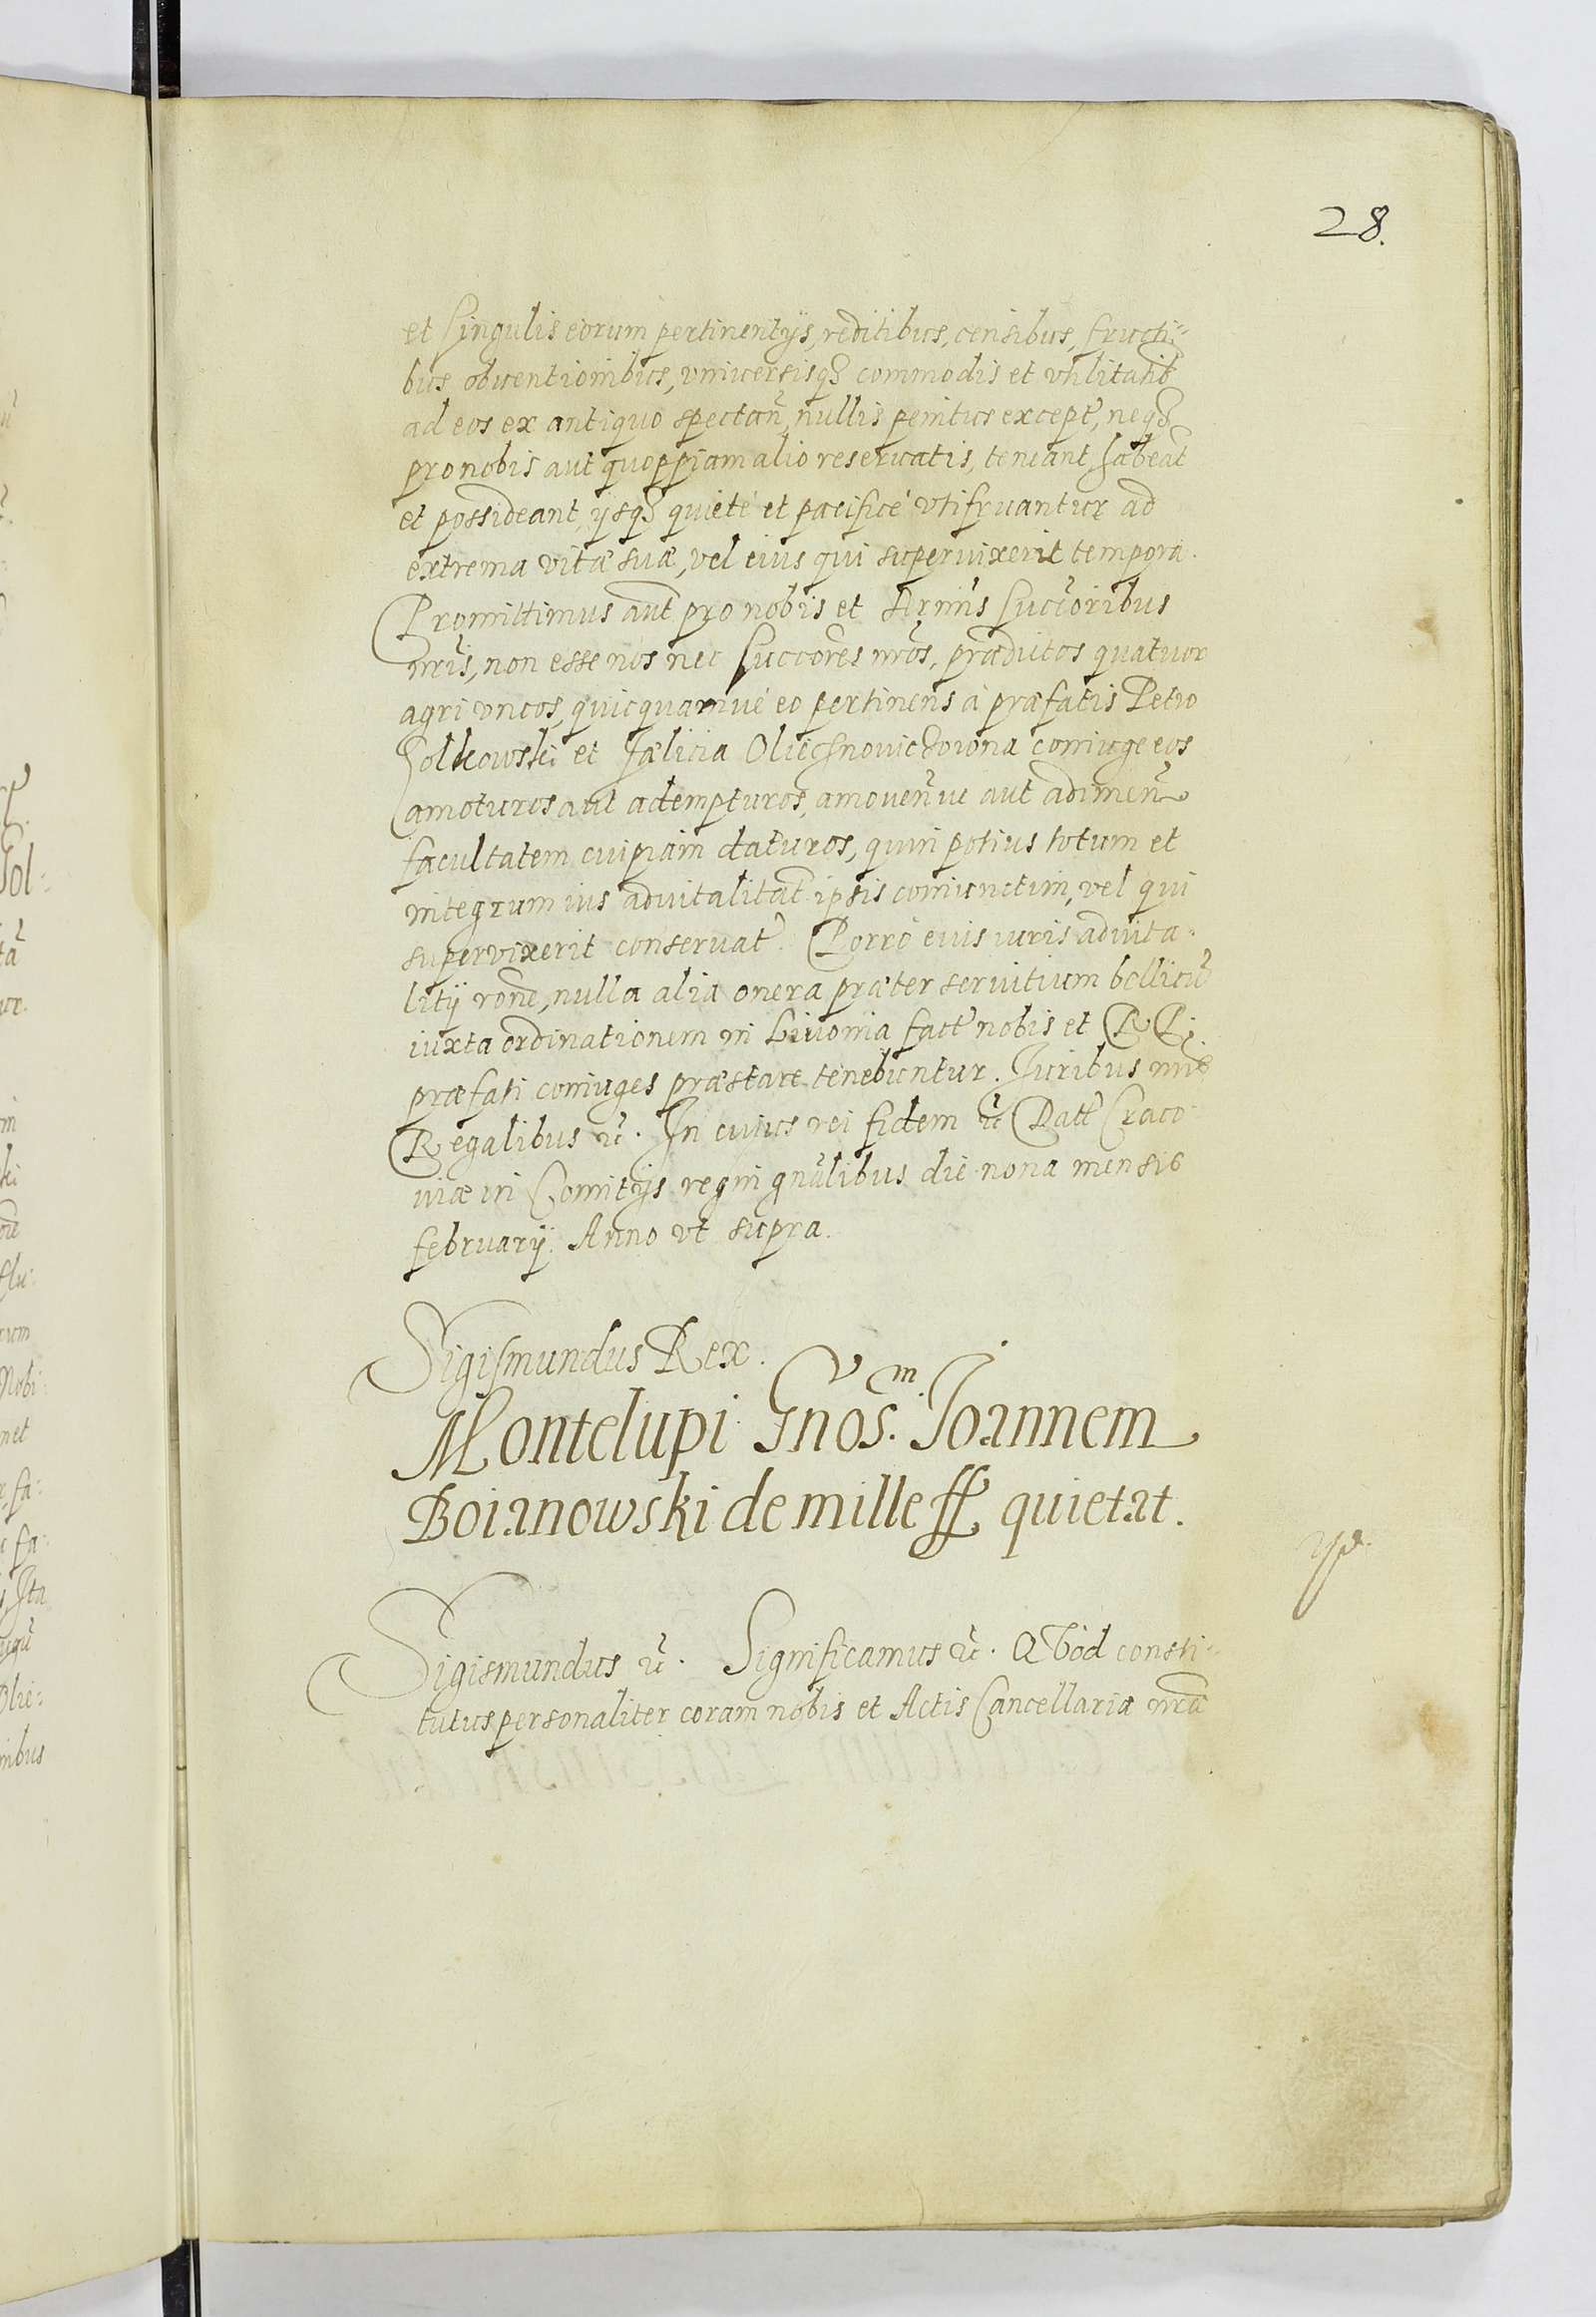 28.
et singulis eorum pertinentijs, reditibus, censibus, fructi-
bus obuentionibus, vniuersisq3 commodis et vtilitatib
ad eos ex antiquo spectan̄, nullis penitus except, neq3
pro nobis aut quoppiam alio reseruatis, teneant, habeāt
et possideant, ijsq3 quietè et pacificè vtifruantur ad
extrema vitæ suæ, vel eius qui superuixerit tempora.
Promittimus aūt pro nobis et Sermīs succ̄oribus
nrīs, non esse nos nec succores nrōs, prædictos quatuor
agri vncos, quicquamuè eo pertinens à præfatis Petro
Solkowski et Fælicia Oliechnouichowna coniuge eos
amoturos aut adempturos, amouen̄ue aut adimen̄
facultatem cuipiam daturos, quin potius totum et
integrum ius aduitalitat ipsis coniunctim, vel qui
supervixerit conseruat. Porrò eius iuris aduita-
litij rone, nulla alia onera præter seruitium bellicū
iuxta ordinationem in Liuonia fact nobis et RP.
præfati coniuges præstare tenebuntur. Iuribus nrīs
Regalibus etc. In cuius rei fidem etc Datt Craco-
uiæ in Comitijs regni gnālibus die nona mensis
februarij. Anno vt supra.
Sigismundus Rex.
Montelupi Gnos.m Ioannem
Boianowski de mille ff quietat.
Sigismundus etc. Significamus etc. QVod consti-
tutus personaliter coram nobis et Actis Cancellariæ nrǣ